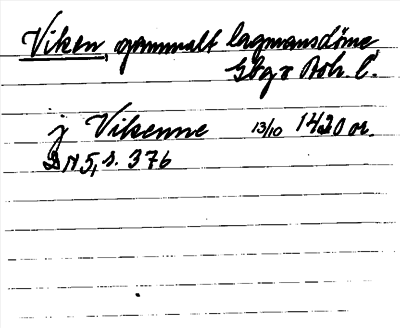 Viken, gammalt lagmansdöme,
Gbg o Boh. l.
j Vikenne 13/10 1420 or.
DN 5, s. 376